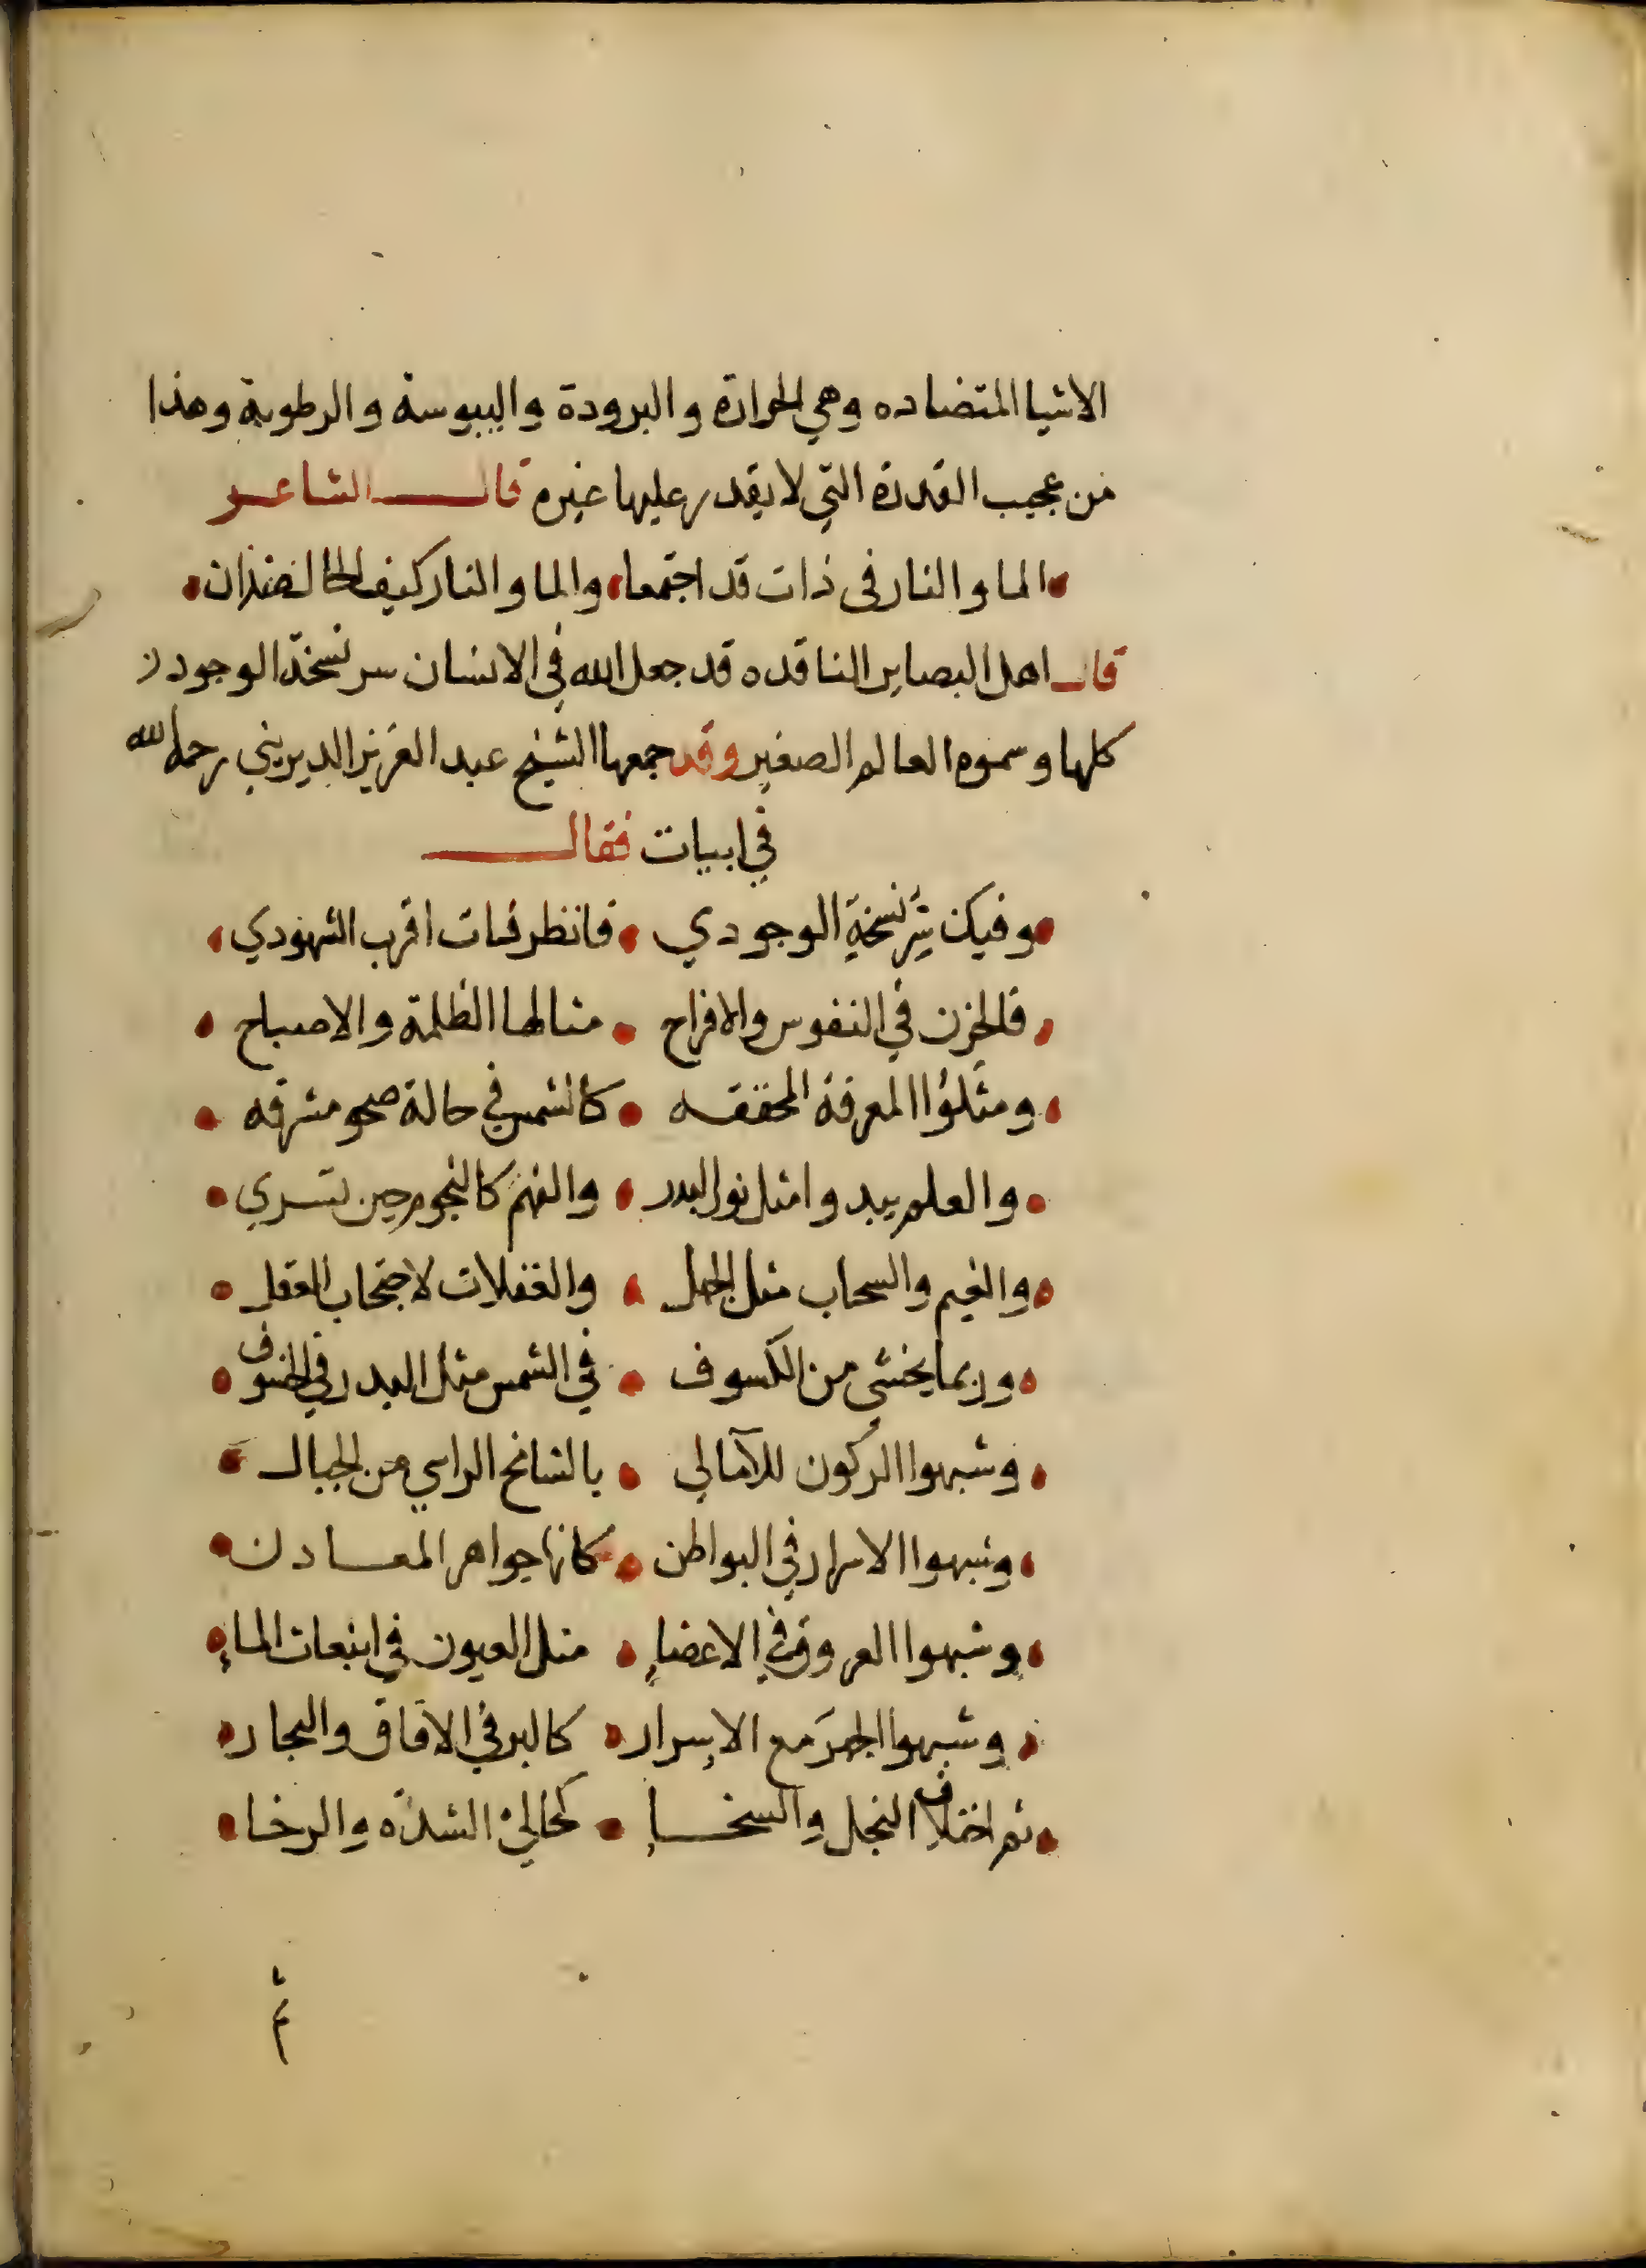 الاشيا المتضاده وهي الحرارة والبرودة واليبوسة والرطوبة وهذا
من عجيب القدرة التي لا يقدر عليها غيره قال الشاعر
الما والنار في ذات قد اجتمعا والما والنار كيف الضدان
قال اهل البصاير الناقده قد جعل الله في الانسان سر نسخة الوجود
كلها وسموه العالم الصغير وقد جمعها الشيخ عبد العزيز الديريني رحمه الله
في ابيات فقال
وفيك سر نسخة الوجودي فانظر اقرب الشهودي
فالحزن في النفوس والافراح مثالها الظلمة والاصباح
ومثلوا المعرفة المحققه كالشمس في حالة صحو مشرقه
والعلم يبدوا مثل نور البدر والفهم كالنجوم حين تسري
والغيم والسحاب مثل الجهل والغفلات لاحتجاب العقل
وربما يخشى من الكسوف في الشمس مثل البدر في الخسوف
وشبهوا الركون للآمالي بالشامخ الراسي من الجبال
وشبهوا الاسرار في البواطن كانها جواهر المعادن
وشبهوا العروق في الاعضاء مثل العيون في انبعاث الماء
وشبهوا الجهر مع الاسرار كالبر في الافاق والبحار
ثم اختلاف البخل والسخاء كحالي الشدة والرخا